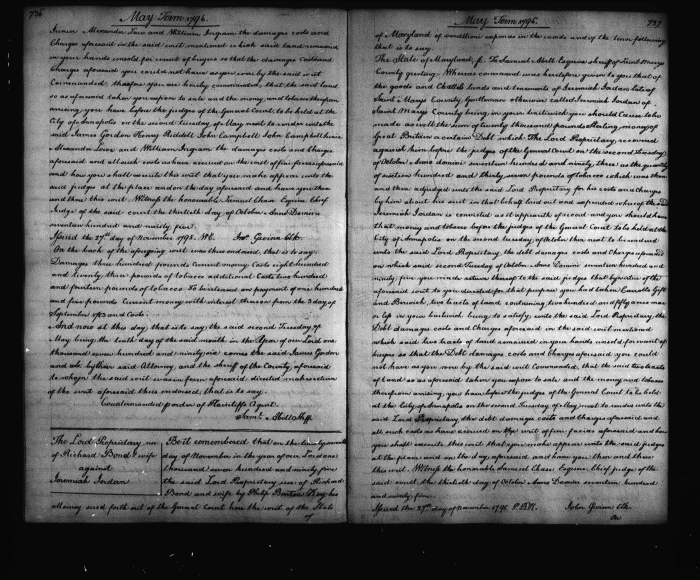 736
May Term 1796.
Alexander Love and William Ingram the damages costs and
Charges aforesaid in the said writ mentioned which said land remained
in your hands unsold for want of buyers so that the damages Costs and
Charges aforesaid you could not have as you was by the said writ
Commanded, therefore you are hereby commanded, that the said land
so as aforesaid taken you expose to sale and the money and tobacco therefrom
arising, you have before the judges of the General Court to be held at the
City of Annapolis on the second Tuesday of May next to render unto the
said James Gordon Henry Riddell John Campbell John Campbell
Alexander Love and William Ingram the damages costs and Charges
aforesaid and all such costs as have accrued on the writ of fieri facias aforesaid
and how you shall execute this writ that you make appear unto the
said judges at the place and on the day aforesaid and have you then
and there this writ. Witness the honorable Samuel Chase Esquire Chief
Judge of the said court the thirtieth day of October Anno Domini
seventeen hundred and ninety five.
Issued the 27th day of November 1795. Jno. Gwinn Clk.
On the back of the aforegoing writ was thus endorsed, that is to say;
Damages three hundred pounds Current money Costs eight hundred
and twenty three pounds of tobacco additional Costs two hundred
and fourteen pounds of tobacco To be released on payment of one hundred
and five pounds Current money with interest thereon from the 3 day of
September 1783 and Costs.
And now at this day, that is to say; the said second Tuesday of
May being the tenth day of the said month in the Year of our Lord one
thousand seven hundred and ninety six comes the said James Gordon
and by their said Attorney, and the sheriff of the County, aforesaid
to whom the said writ was in form aforesaid directed makes return
of the writ aforesaid thus endorsed, that is to say;
Countermanded order of Plaintiffs Agent.
Saml. Abell Shff.
The Lord Proprietary, use
of Richard Bond & wife
against
Jeremiah Jordan
Be it remembered that on the twenty seventh
day of November in the year of our Lord one
thousand seven hundred and ninety five
the said Lord Proprietary use of Richard
Bond and wife by Philip Barton Key his
attorney sued forth out of the General Court here the writ of the State
of
May Term 1796.
737
of Maryland of venditioni exponas in the words and of the tenor following
that is to say.
The State of Maryland, sc. To Samuel Abell Esquire sheriff of Saint Mary's
County greeting: Whereas command was heretofore given to you that of
the goods and Chattels lands and tenements of Jeremiah Jordan late of
Saint Mary's County Gentleman otherwise called Jeremiah Jordan of
Saint Mary's County being in your bailiwick you should Cause to be
made as well the sum of twenty thousand pounds Sterling money of
Great Britain a certain Debt which The Lord Proprietary, recovered
against him before the judges of the General Court on the second Tuesday
of October Anno domini seventeen hundred and ninety, three as the quantity
of sixteen hundred and thirty seven pounds of tobacco which was then
and there adjudged unto the said Lord Proprietary for his costs and charges
by him about his suit in that behalf laid out and expended whereof the said
Jeremiah Jordan is convicted as it appears of record and you should have
that money and tobacco before the judges of the General Court to be held at the
City of Annapolis on the second Tuesday of October then next to be rendered
unto the said Lord Proprietary, the debt damages costs and Charges aforesaid
on which said second Tuesday of October Anno Domini seventeen hundred and
ninety five you made return thereof to the said judges that by virtue of the
aforesaid writ to you directed for that purpose you had taken Carrolls Gift
and Berwick, two tracts of land containing two hundred and fifty acres more
or less in your bailiwick being to satisfy unto the said Lord Proprietary, the
Debt damages costs and Charges aforesaid in the said writ mentioned
which said two tracts of land remained in your hands unsold for want of
buyers so that the Debt damages costs and Charges aforesaid you could
not have as you were by the said writ Commanded, that the said two tracts
of land so as aforesaid taken you expose to sale and the money and tobacco
therefrom arising, you have before the judges of the General Court to be held
at the City of Annapolis on the second Tuesday, of May next to render unto the
said Lord Proprietary the debt damages costs and Charges aforesaid and
all such costs as have accrued on the writ of fieri facias aforesaid and how
you shall execute this writ that you make appear unto the said judges
at the place and on the day aforesaid and have you then and there
this writ. Witness the honorable Samuel Chase Esquire, Chief judge of the
said court the thirtieth day of October Anno Domini seventeen hundred
and ninety five.
Issued the 27th day of November 1795. P.B.K. John Gwinn Clk.